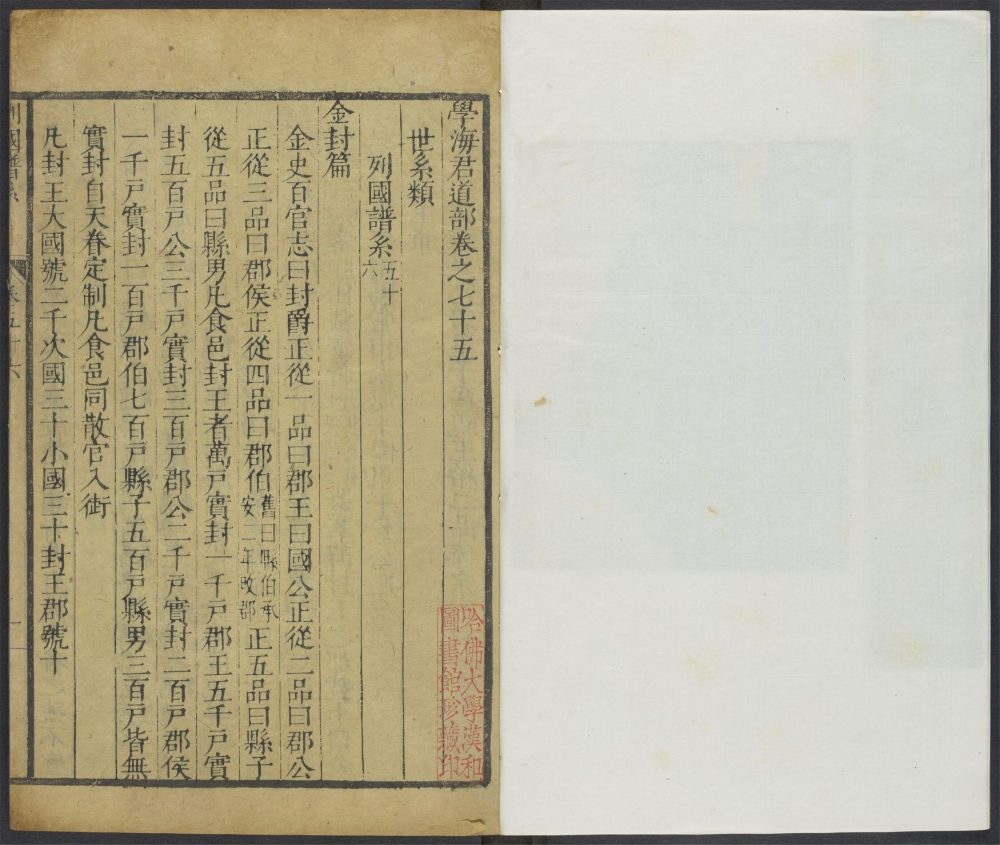 學海君道部卷之七十五
世系類
列國譜系五十六
金封篇
金史百官志曰封爵正從一品曰郡王曰國公正從二品曰郡公
正從三品曰郡侯正從四品曰郡伯舊曰縣伯承安二年改郡正五品曰縣子
從五品曰縣男凡食邑封王者萬戸實封一千戸郡王五千戸實
封五百戸公三千戸實封三百戸郡公二千戸實封二百戸郡侯
一千戸實封一百戸郡伯七百戸縣子五百戸縣男三百戸皆無
實封自天眷定制凡食邑同散官入銜
凡封王大國號二千次國三十小國三十封王郡號十
列國譜系
卷五十六
一
哈佛大學漢和
圖書館珍藏印